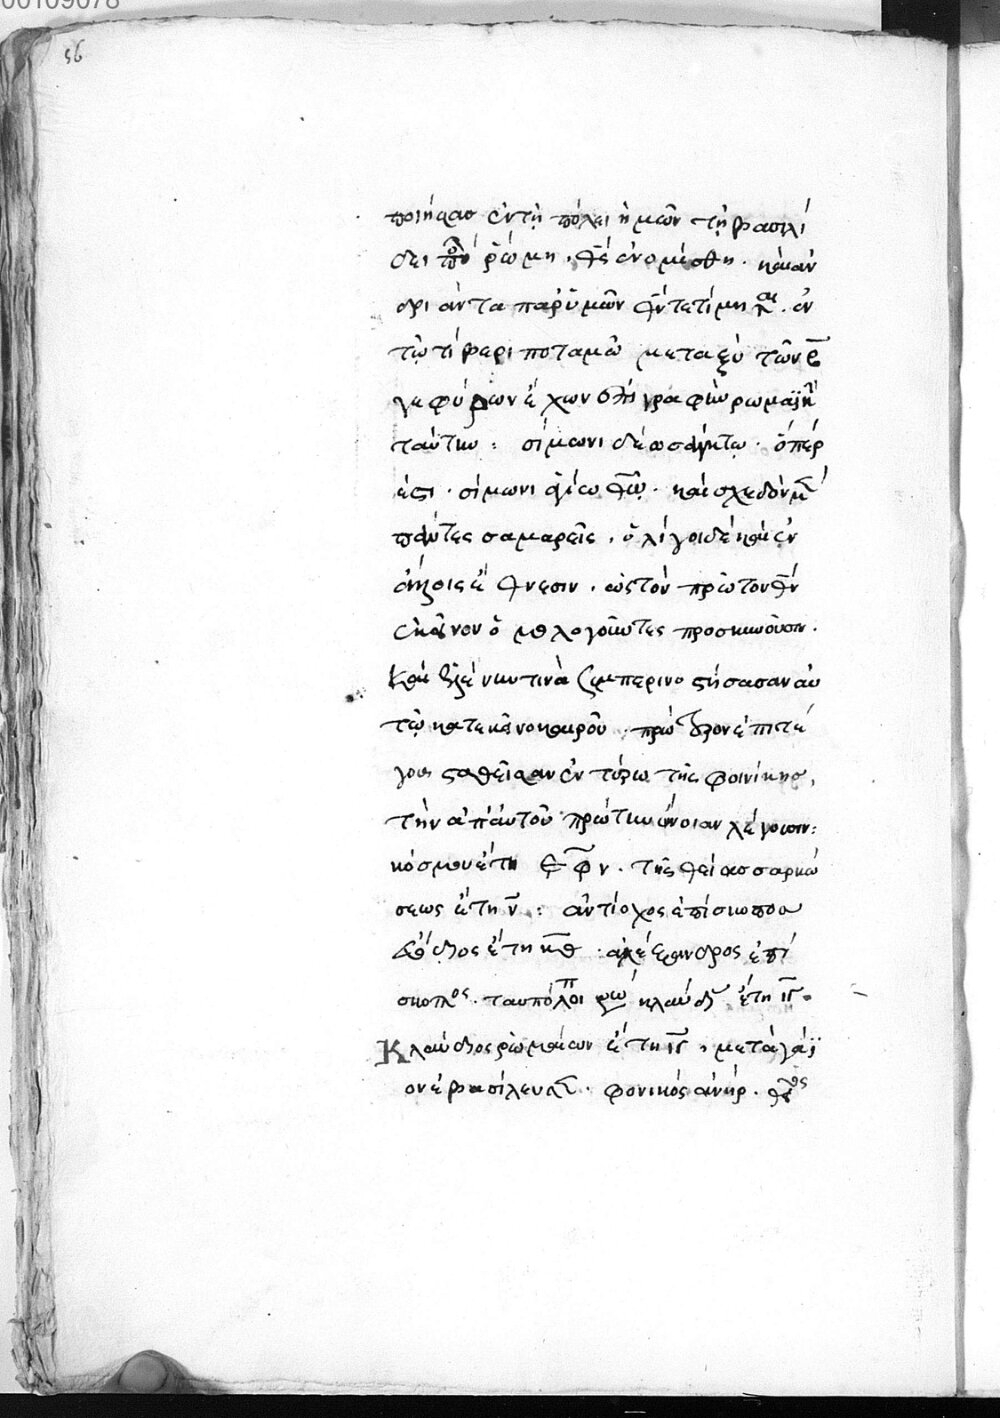 00109078
56
ποιήσας ἐν τῇ πόλει ἡμῶν τῇ βασιλί
δει ῥώμη, θς ἐνομίσθη. καὶ ἀν
δριάντα παρ' ὑμῶν ὡς θς τετίμηται. ἐν
τῷ τίβερι ποταμῷ μεταξὺ τῶν β
γεφύρων ἔχων ἐπιγραφὴν ῥωμαϊκὴν
ταύτην: σίμωνι δέω σάγκτω. ὅπερ
ἐστι. σίμωνι ἁγίω θῶ. καὶ σχεδὸν μ
πάντες σαμαρεῖς, ὀλίγοι δὲ καὶ ἐν
ἄλλοις ἔθνεσιν. ὡς τὸν πρῶτον θν
ἐκεῖνον ὁμολογοῦντες προσκυνοῦσιν.
Καὶ ἑλένην τινὰ συμπερινοστήσασαν αὐ
τῷ κατ' ἐκεῖνο καιροῦ, πρότερον ἐπὶ τέ
γους σταθεῖσαν ἐν τύρω τῆς φοινίκης,
τὴν ἀπ' αὐτοῦ πρώτην ἔννοιαν λέγουσιν:
κόσμου ἔτη ͵εφν. τῆς θείας σαρκώ
σεως ἔτη ν: ἀντίοχος ἐπίσκοπος
εὔοδος ἔτη κθ: ἀλέξανδρος ἐπί
σκοπος. ῥω κλαυδ ἔτη ιγ.
Κλαύδιος ῥωμαίων ἔτη ιγ, μετὰ γάϊ
ον ἐβασίλευσεν. φονικὸς ἀνήρ.